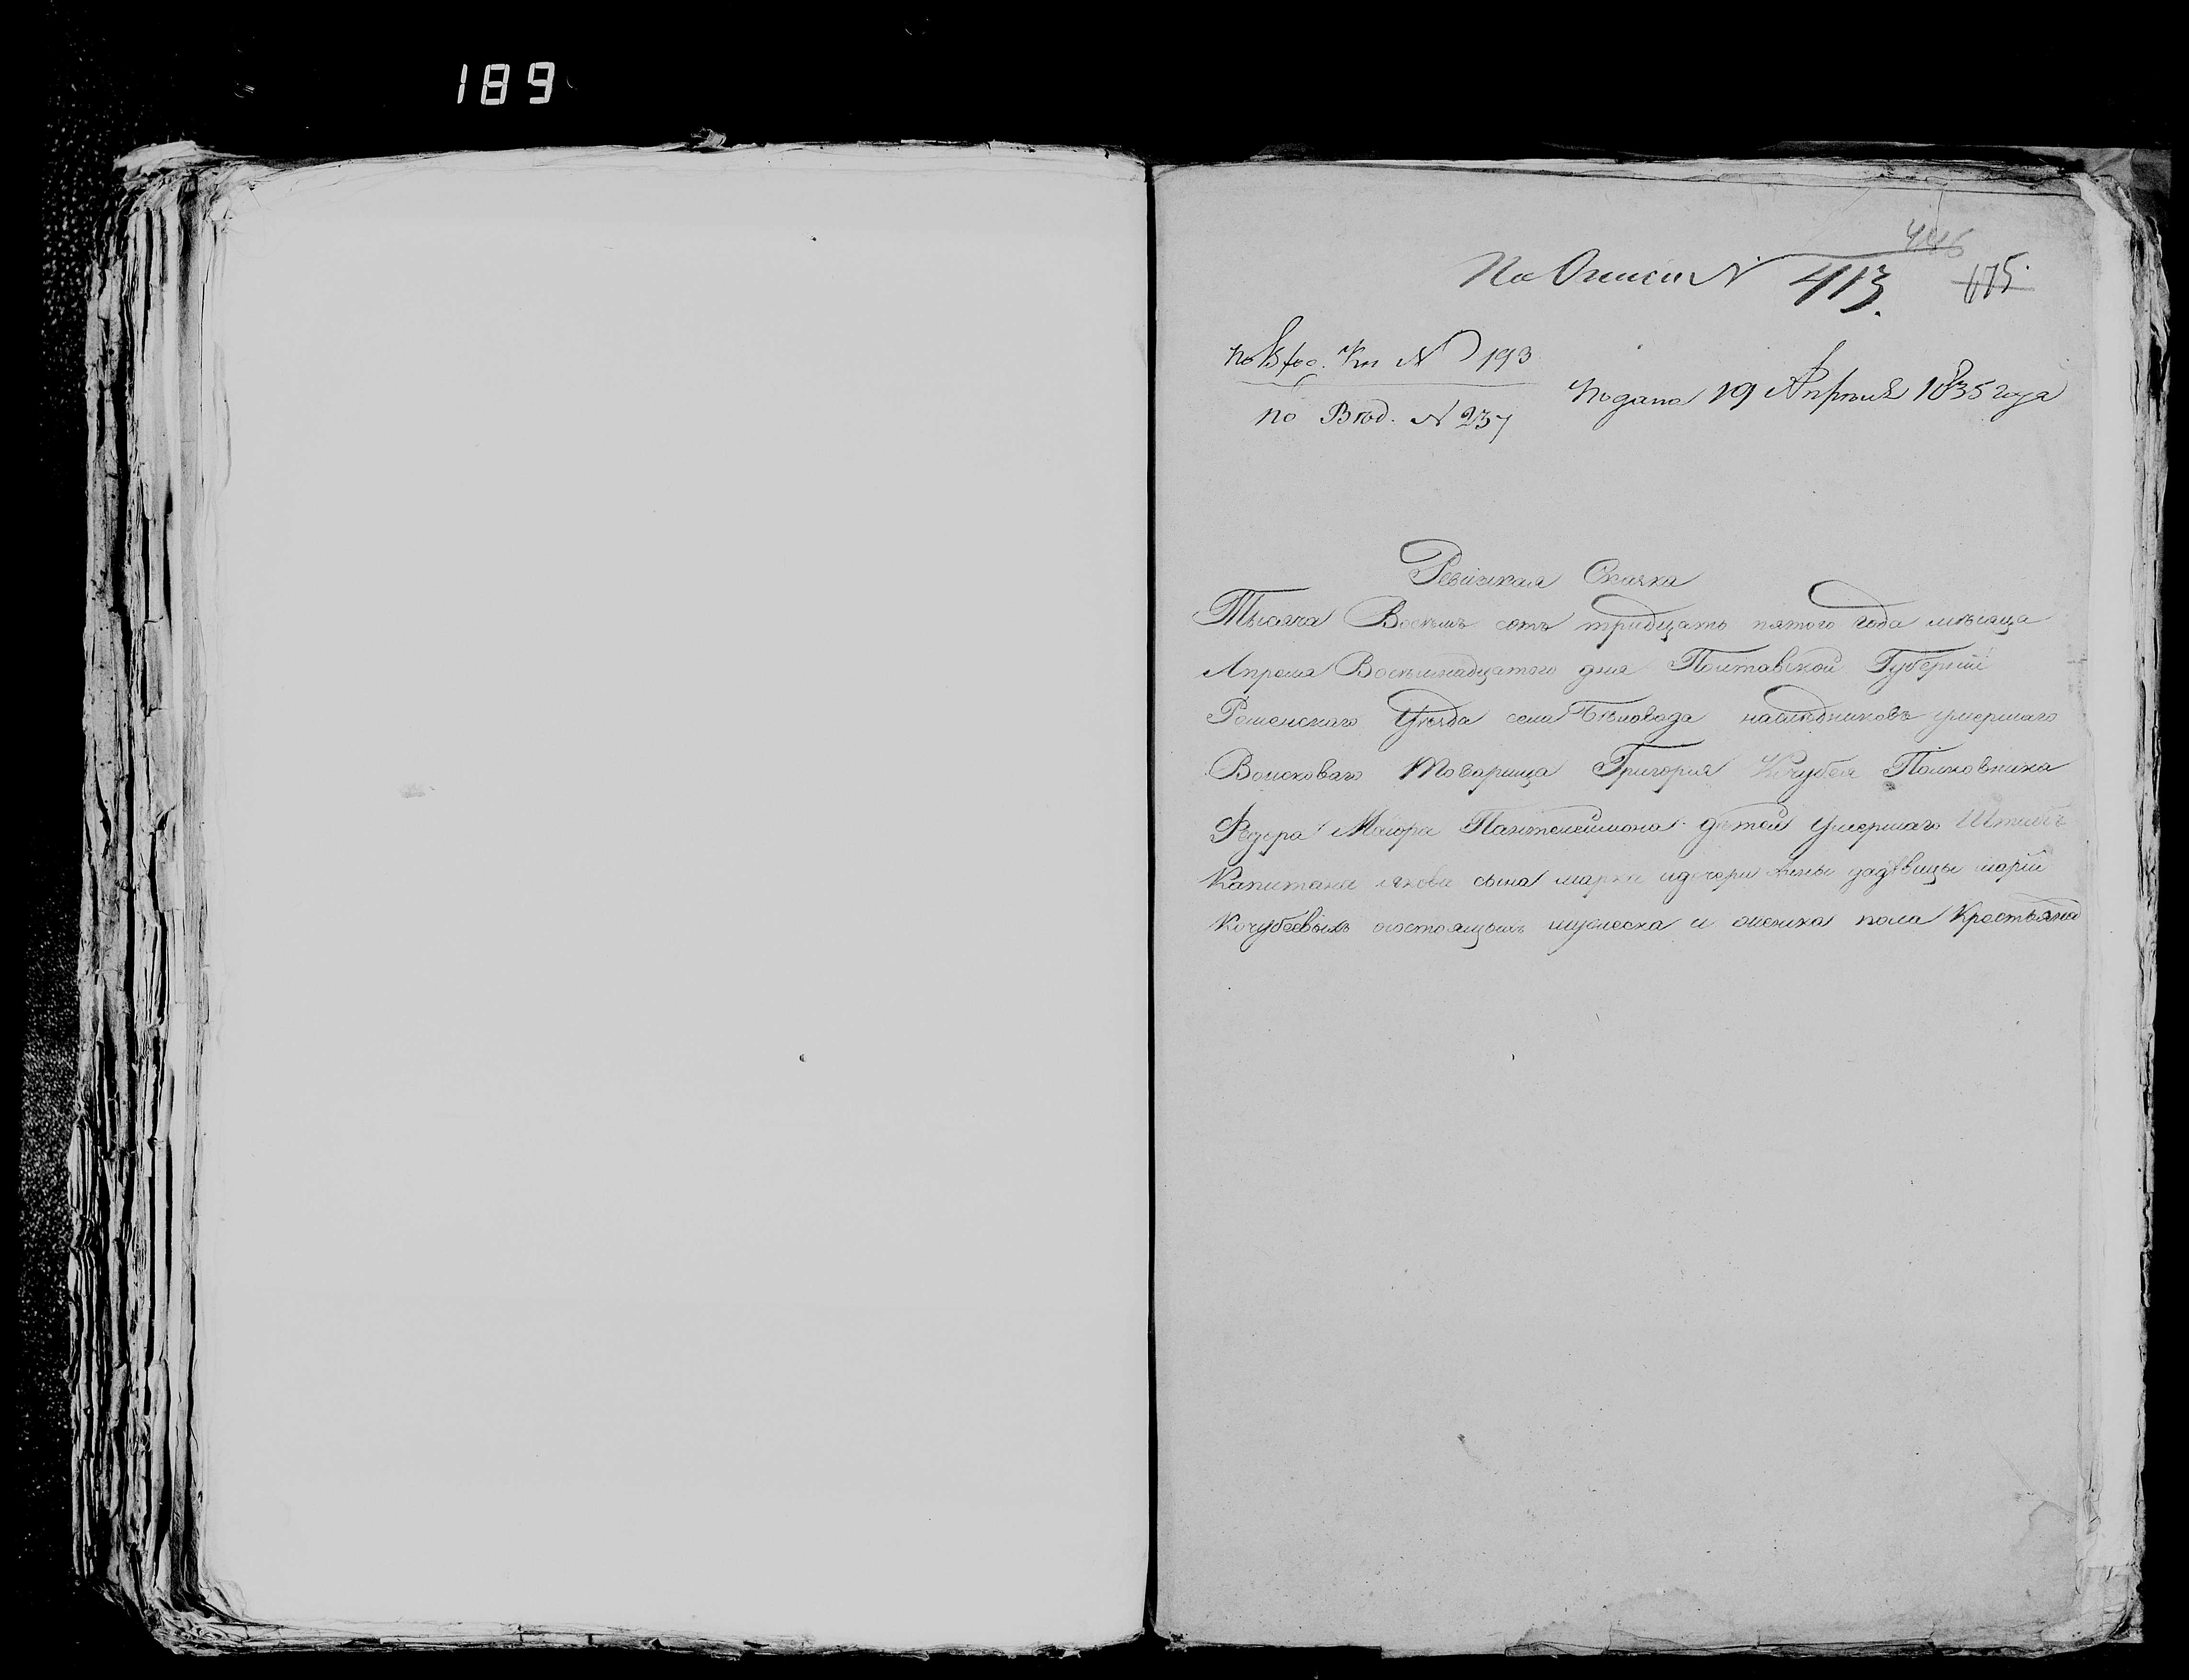 189
446
По Описи № 413. 675.
по Вход. Кн № 193
Подана 19 Апреля 1835 года
по Вѣд. № 237
Ревизкая Скаска
Тысяча Восемъ сотъ тридцать пятого года мѣсяца
Апреля Восемнадцатого дня Полтавской Губерніи
Роменскаго Уѣзда села Бѣловода наслѣдниковъ умершаго
Войсковаго Товарища Григория Кочубея Полковника
Федора Маiора Пантелеимона детей умершаго Штабъ
Капитана якова сына марка идочери Анны удѣвицы маріи
Кочубеевыхъ осостоящыхъ мужеска и женска пола Крестьяна